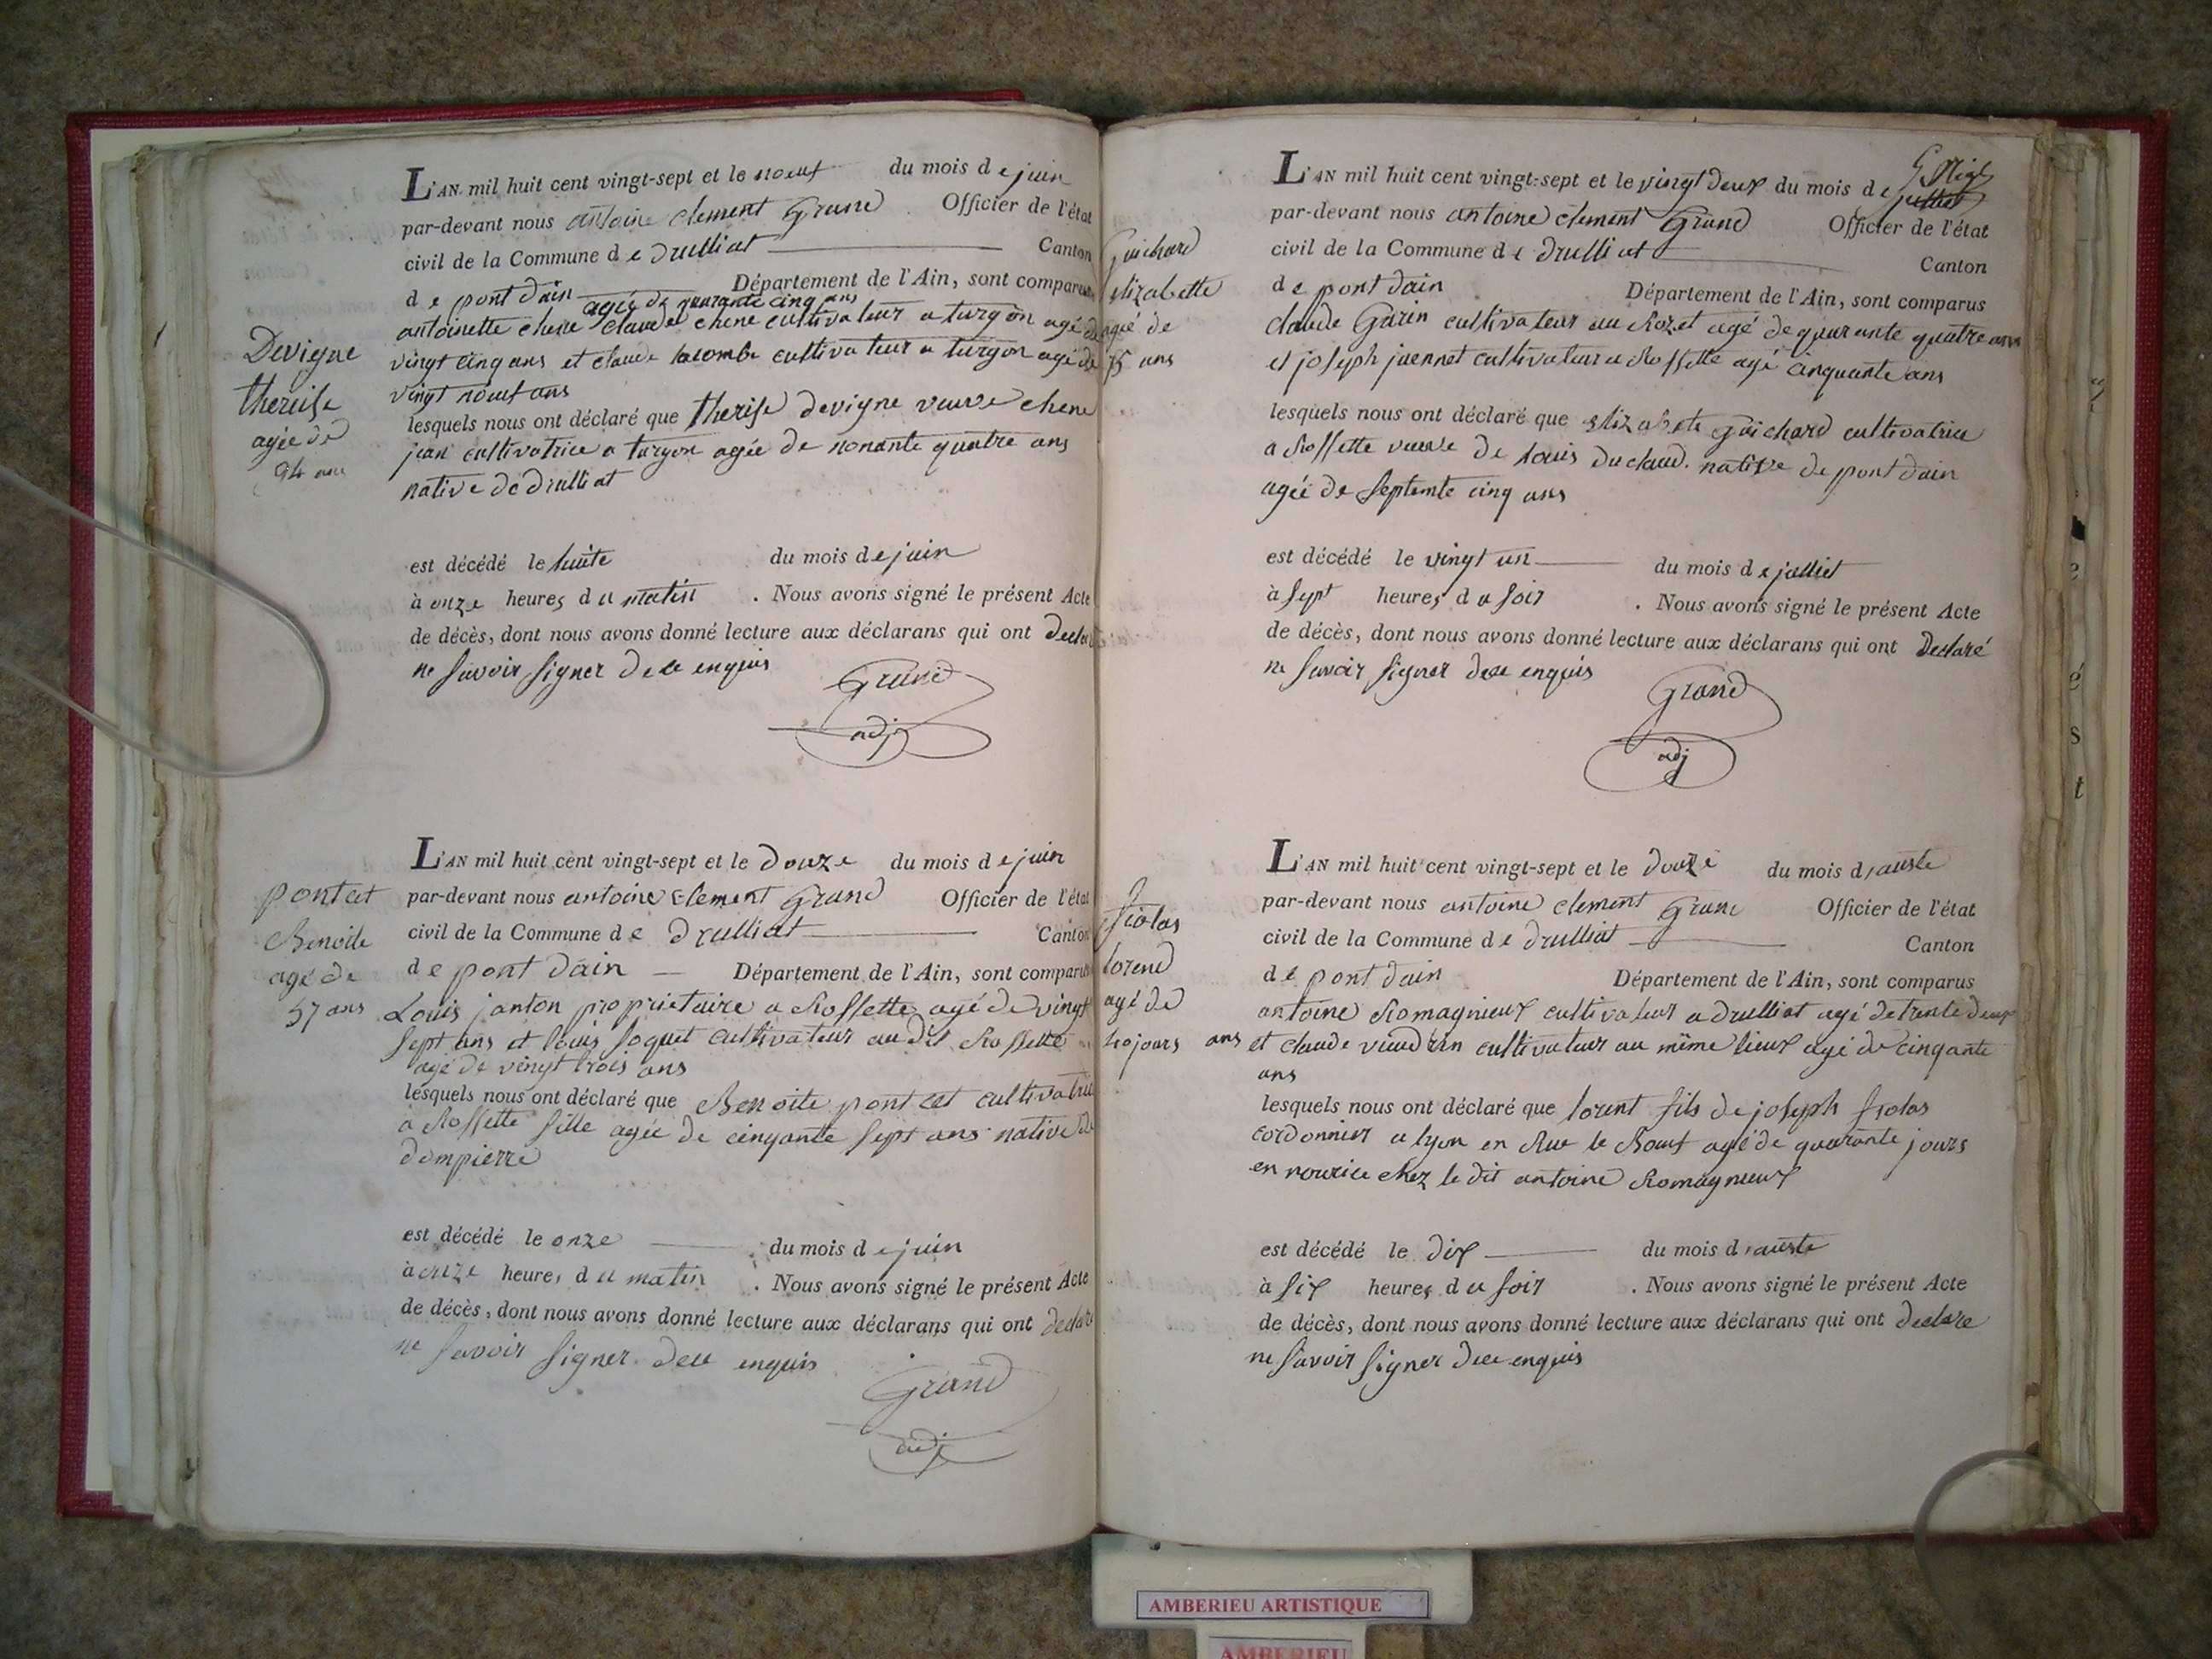 L'AN mil huit cent vingt-sept et le noeuf du mois de juin
par-devant nous antoine clement Grand Officier de l'état
civil de la Commune de druilliat Canton
de pont dain Département de l'Ain, sont comparus
agée de quarante cinq ans
antoinette chene claude chene cultivateur a turgon agé de
vingt cinq ans et claude lacombe cultivateur a turgon agé de
vingt noeuf ans
lesquels nous ont déclaré que therese devigne veuve chene
jean cultivatrice a turgon agée de nonante quatre ans
native de druilliat
est décédé le huite du mois de juin
à onze heures du matin . Nous avons signé le présent Acte
de décès, dont nous avons donné lecture aux déclarans qui ont declaré
ne savoir signer de ce enquis
Grand
adj
Devigne
therese
agée de
94 ans
L'AN mil huit cent vingt-sept et le douze du mois de juin
par-devant nous antoine clement Grand Officier de l'état
civil de la Commune de druilliat Canton
de pont dain Département de l'Ain, sont comparus
Louis janton proprietaire a Rossette agé de vingt
sept ans et louis soquet cultivateur au dit Rossette
agé de vingt trois ans
lesquels nous ont déclaré que Benoite pontcet cultivatrice
a Rossette fille agée de cinqante sept ans native de
dompierre
est décédé le onze du mois de juin
à onze heures du matin . Nous avons signé le présent Acte
de décès, dont nous avons donné lecture aux déclarans qui ont declaré
ne savoir signer de ce enquis
Grand
adj
pontcet
Benoite
agé de
57 ans
L'AN mil huit cent vingt-sept et le vingt deux du mois de juilliet
par-devant nous antoine clement Grand Officier de l'état
civil de la Commune de druilliat Canton
de pont dain Département de l'Ain, sont comparus
claude Garin cultivateur au Rozet agé de quarante quatre ans
et joseph juennet cultivateur a Rossette agé cinquante ans
lesquels nous ont déclaré que elizabete guichard cultivatrice
a Rossette veuve de louis duclaud native de pont dain
agée de septente cinq ans
est décédé le vingt un du mois de julliet
à sept heures du soir . Nous avons signé le présent Acte
de décès, dont nous avons donné lecture aux déclarans qui ont declaré
ne savoir signer de ce enquis
Grand
adj
Guichard
elizabette
agée de
75 ans
L'AN mil huit cent vingt-sept et le douze du mois d'auste
par-devant nous antoine clement Grand Officier de l'état
civil de la Commune de druilliat Canton
de pont dain Département de l'Ain, sont comparus
antoine Romagnieux cultivateur a druilliat agé de trente deux
ans et claude cultivateur au même lieux agé de cinqante
ans
lesquels nous ont déclaré que lorent fils de joseph fiolas
cordonnier a lyon en Rue le Boeuf agé de quarante jours
en nourice chez le dit antoine Romagnieux
est décédé le dix du mois d'auste
à six heures du soir . Nous avons signé le présent Acte
de décès, dont nous avons donné lecture aux déclarans qui ont declare
ne savoir signer de ce enquis
fiolas
lorend
agé de
40 jours
AMBERIEU ARTISTIQUE
AMBERIEU